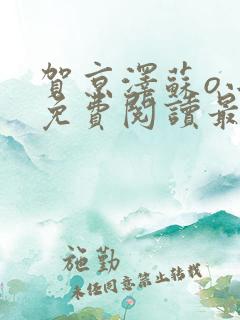 賀京澤蘇o
免費閱讀最
施勤
未經同意禁止轉載